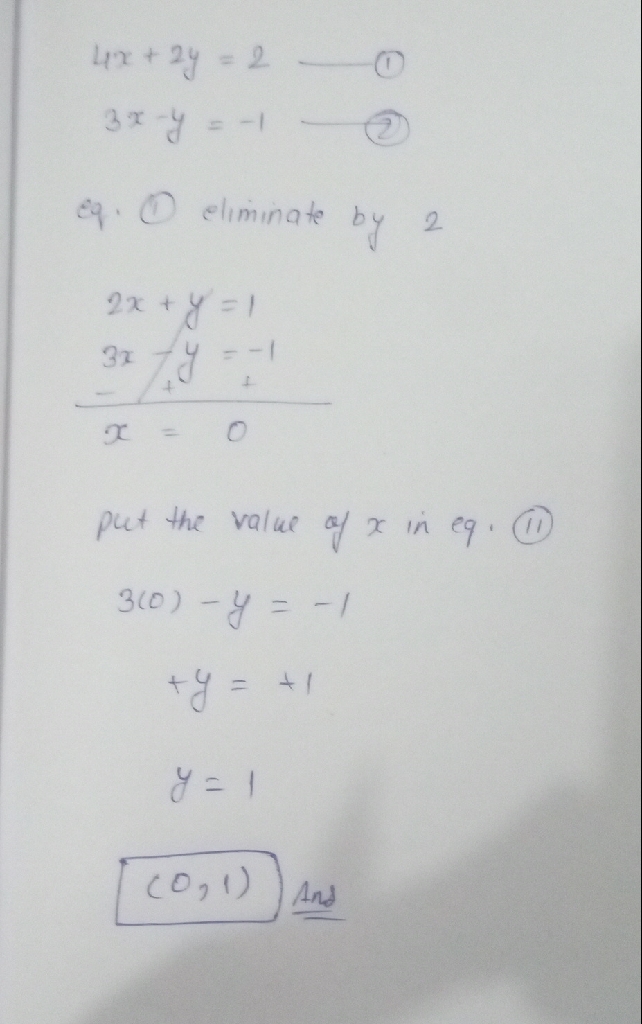 4x + 2y = 2 —— ①
3x - y = -1 —— ②
eq. ① eliminate by 2
2x + y = 1
3x - y = -1
- + +
x = 0
put the value of x in eq. ⑪
3(0) - y = -1
+y = +1
y = 1
(0,1) Ans